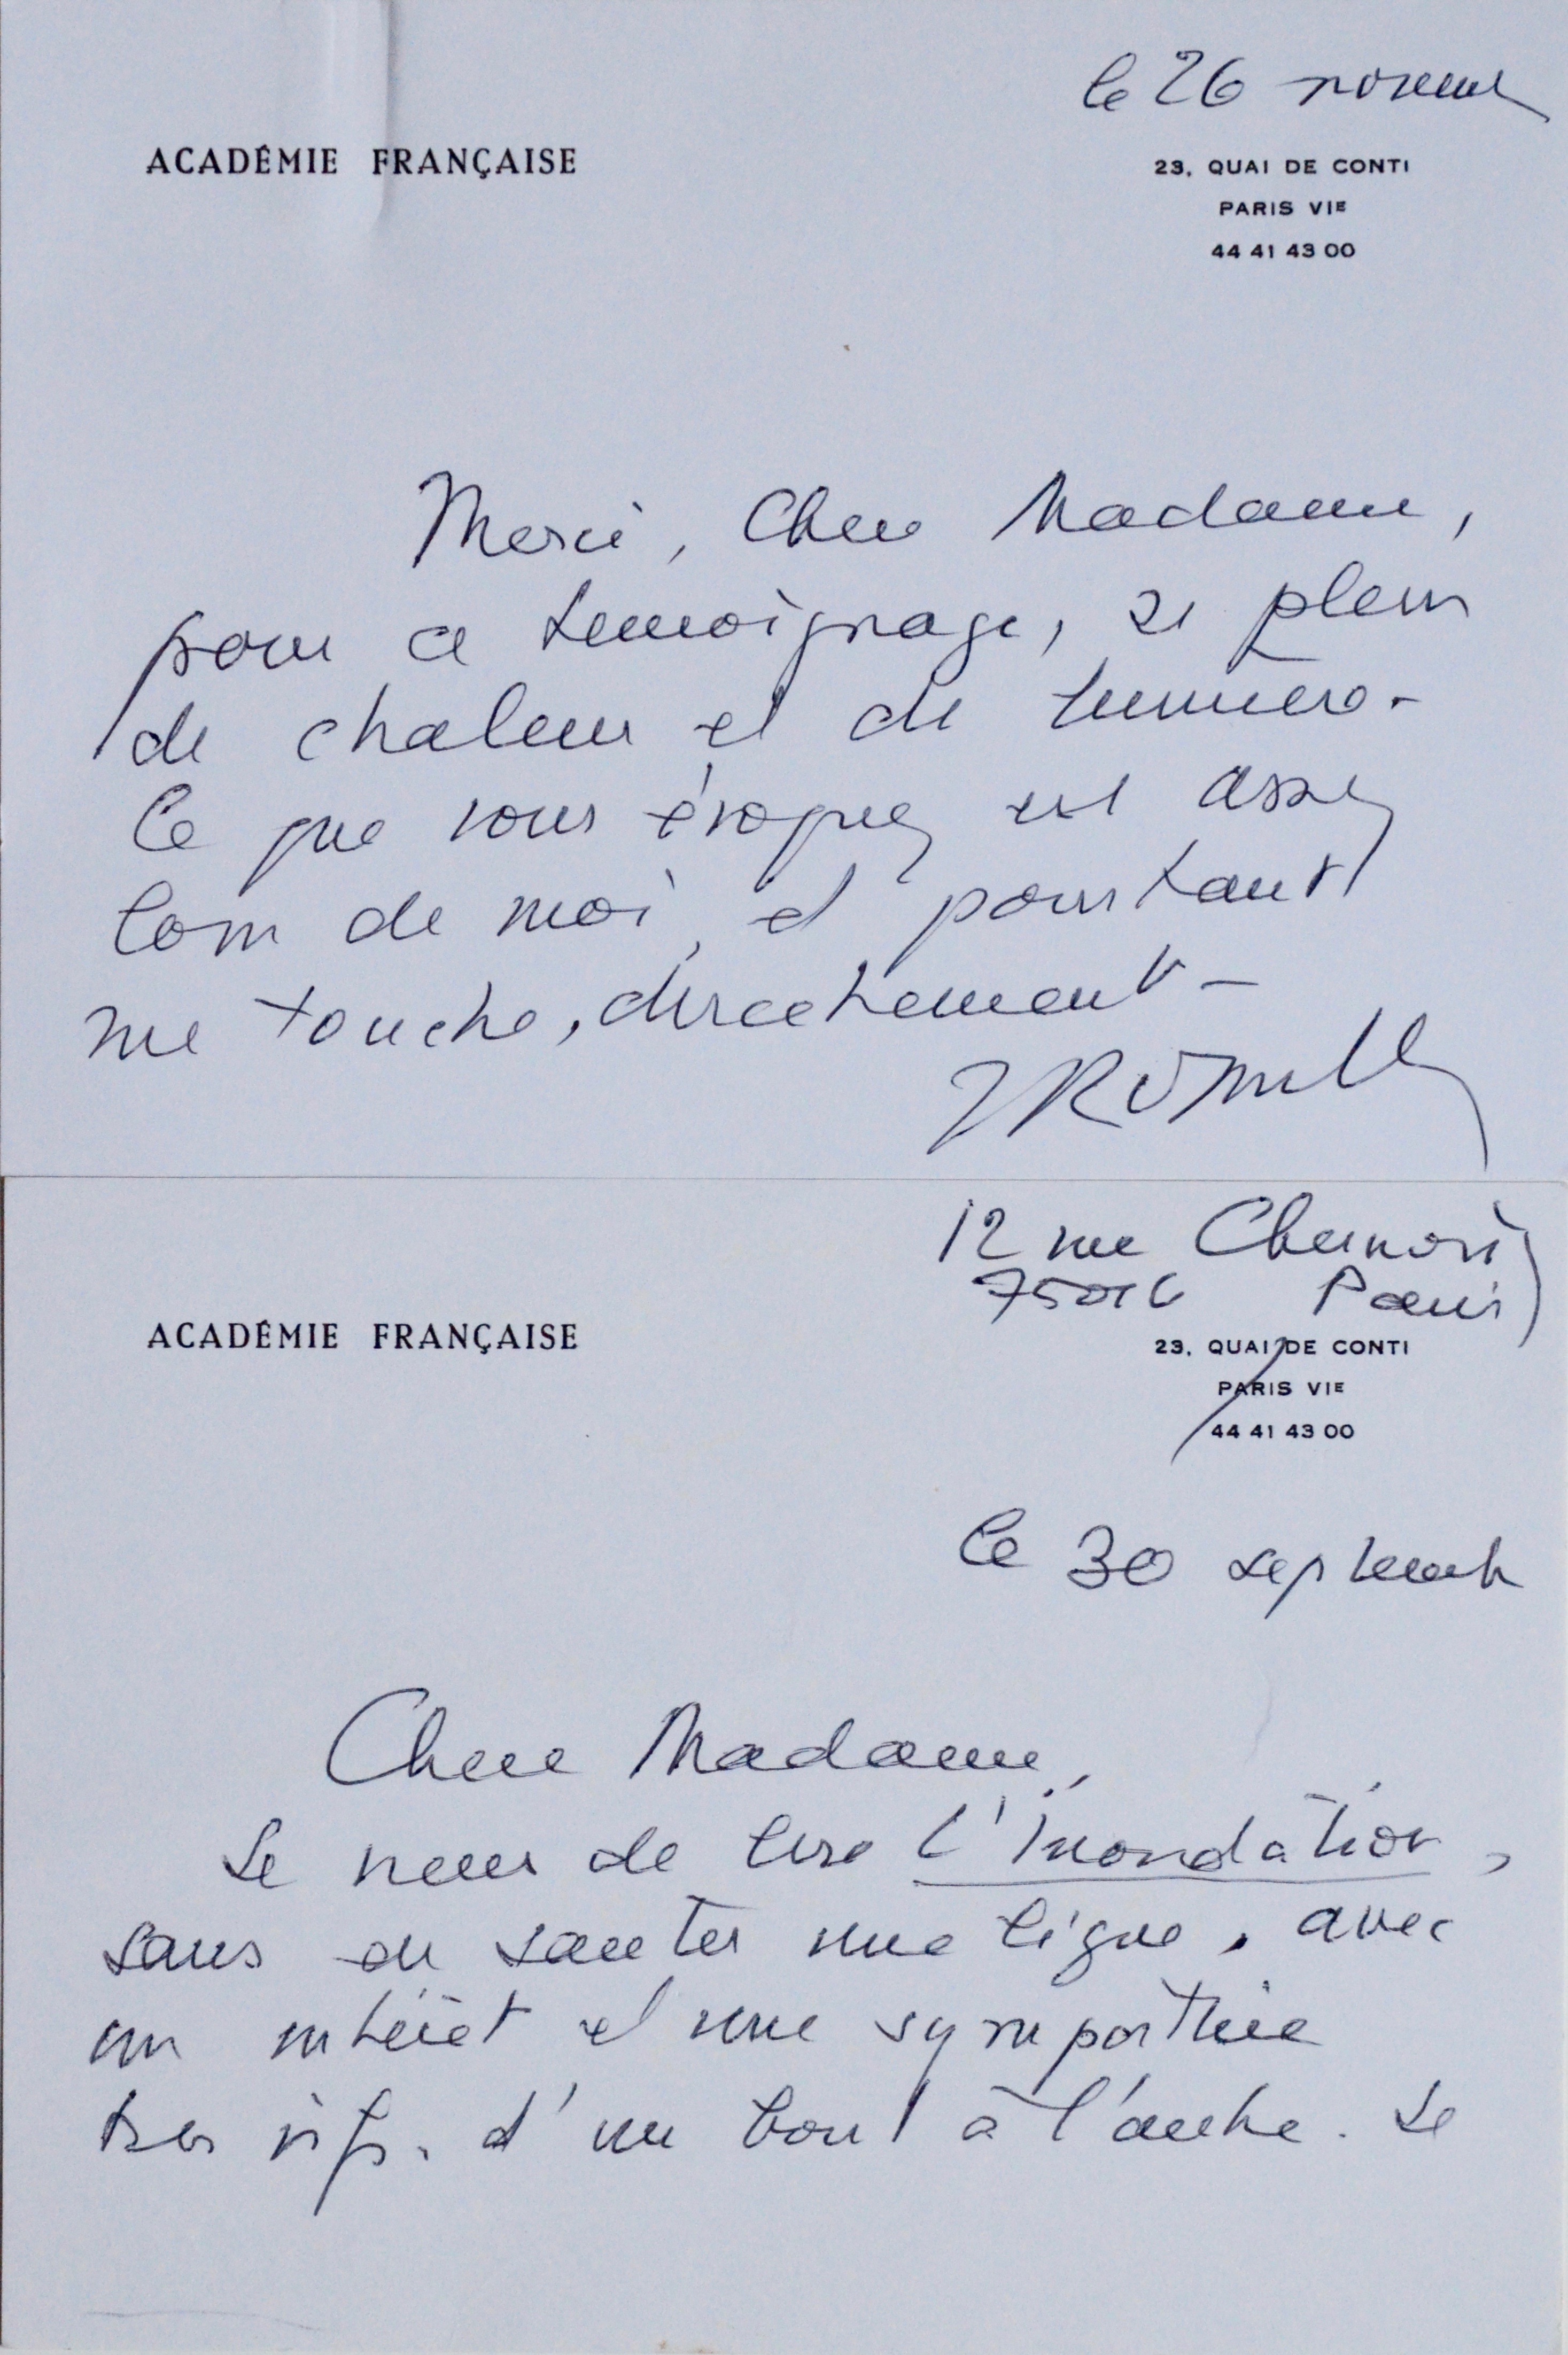 le 26 novembre
ACADÉMIE FRANÇAISE
23, QUAI DE CONTI
PARIS VIE
44 41 43 00
Merci, Chere Madame,
pour ce temoignage, si plein
de chaleur et de lumiere.
Ce que vous évoquez est assez
loin de moi, et pourtant
me touche, directement –
JRomilly
12 rue Chernoviz
75016 Paris
ACADÉMIE FRANÇAISE
23, QUAI DE CONTI
PARIS VIE
44 41 43 00
le 30 septembre
Chere Madame,
Je viens de lire L'Inondation,
sans en sauter une ligne, avec
un intérêt et une sympathie
tres vifs, d'un bout à l'autre. Je